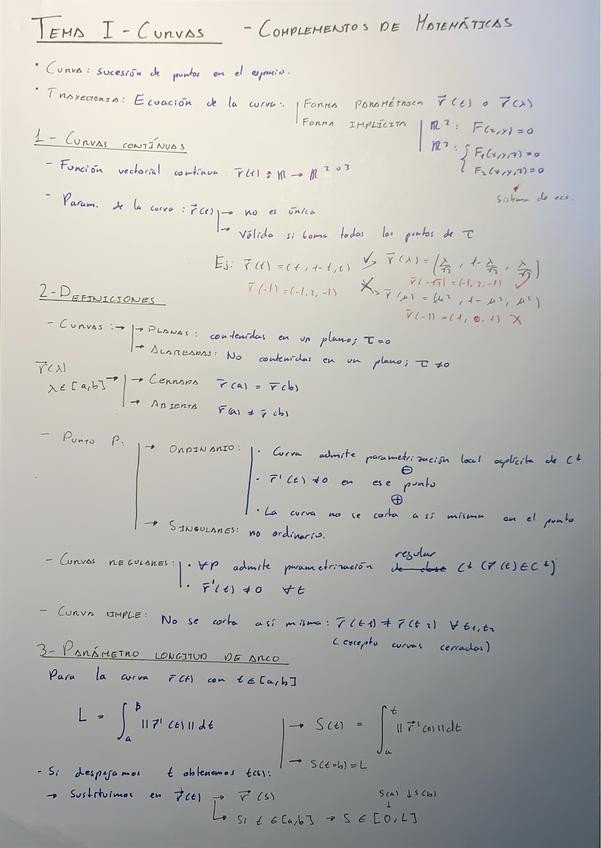 TEMA I - CURVAS - COMPLEMENTOS DE MATEMÁTICAS
• CURVA: sucesión de puntos en el espacio.
• TRAYECTORIA: Ecuación de la curva: FORMA PARAMÉTRICA r⃗(t) o r⃗(λ)
FORMA IMPLÍCITA ℝ²: F(x,y)=0
ℝ³: { F₁(x,y,z)=0
F₂(x,y,z)=0
Sistema de ecs.
1 - CURVAS CONTÍNUAS
- Función vectorial continua: r⃗(t): ℝ → ℝ² o 3
- Param. de la curva: r⃗(t) → no es única
→ Válida si toma todos los puntos de τ
Ej: r⃗(t) = (t, 1-t, t) ✓→ r⃗(λ) = (λ/√3, 1-λ/√3, λ/√3)
r⃗(-1) = (-1, 2, -1) r⃗(-√3) = (-1, 2, -1) ✓
X→ r⃗(μ) = (μ², 1-μ², μ²)
r⃗(-1) = (1, 0, 1) X
2 - DEFINICIONES
- CURVAS: → PLANAS: contenidas en un plano; τ=0
→ ALABEADAS: No contenidas en un plano; τ ≠ 0
r⃗(λ)
λ∈[a,b] → CERRADA r⃗(a) = r⃗(b)
→ ABIERTA r⃗(a) ≠ r⃗(b)
- PUNTO P: → ORDINARIO: • Curva admite parametrización local explícita de C¹
⊖
• r⃗'(t) ≠ 0 en ese punto
⊕
• La curva no se corta a sí misma en el punto
→ SINGULARES: no ordinario.
- CURVAS REGULARES: • ∀P admite parametrización regular C¹ (r⃗(t)∈C¹)
• r⃗'(t) ≠ 0 ∀t
- CURVA SIMPLE: No se corta a sí misma: r⃗(t1) ≠ r⃗(t2) ∀ t₁,t₂
(excepto curvas cerradas)
3 - PARÁMETRO LONGITUD DE ARCO
Para la curva r⃗(t) con t∈[a,b]
L = ∫ₐᵇ ||r⃗'(t)|| dt → S(t) = ∫ₐᵗ ||r⃗'(t)|| dt
→ S(t=b) = L
- Si despejamos t obtenemos t(s):
→ Sustituimos en r⃗(t) → r⃗(s) S(a) ↓ S(b)
↳ Si t∈[a,b] → S∈[0,L]